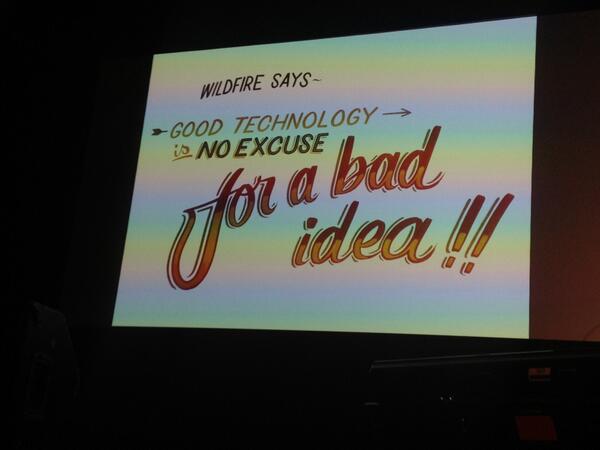 WILDFIRE SAYS~
GOOD TECHNOLOGY →
is NO EXCUSE
for a bad
idea!!